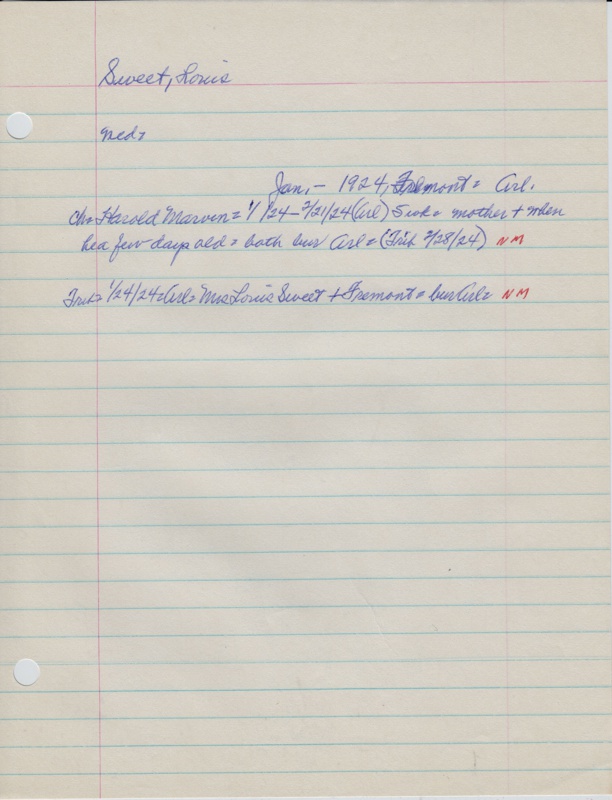 Sweet, Louis
Med=
Jan. - 1924, Fremont = Arl.
Ch= Harold Marven = 1/ /24 - 2/21/24 (Arl) 5 wk = mother + when
he a few days old = both bur Arl = (Trib 2/28/24) NM
Trib = 1/24/24 = Arl = Mrs Louis Sweet + Fremont = bur Arl = NM